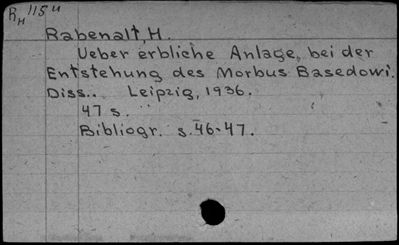 RH 115u
Rabenalt, H.
Ueber erbliche Anlage, bei der
Entstehung des Morbus Basedowi.
Diss.. Leipzig, 1936.
47 s.
Bibliogr. s. 46-47.